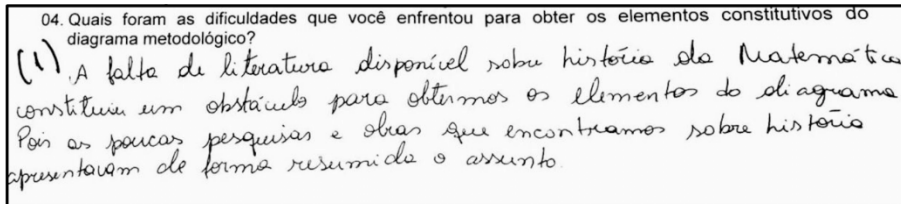 04. Quais foram as dificuldades que você enfrentou para obter os elementos constitutivos do
diagrama metodológico?
(1) A falta de literatura disponível sobre história da Matemática
constituiu um obstáculo para obtermos os elementos do diagrama
Pois as poucas pesquisas e obras que encontramos sobre história
apresentavam de forma resumida o assunto.